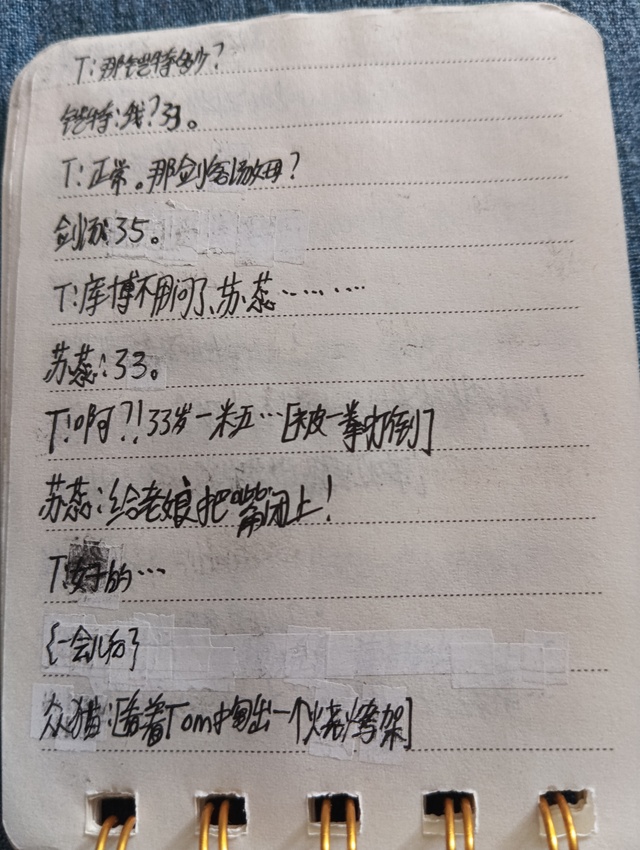 T:那铠特多少?
铠特:我?33。
T:正常。那剑客汤姆?
剑汤:35。
T:库博不用问了,苏蕊………
苏蕊:33。
T:啊?!33岁一米五…[被一拳打倒]
苏蕊:给老娘把嘴闭上!
T:好的…
{一会儿后}
众猫:[看着Tom掏出一个烧烤架]